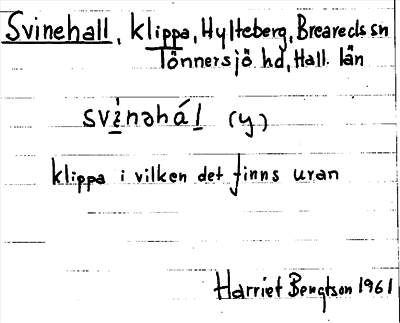 Svinehall, klippa, Hylteberg, Breareds sn
Tönnersjö hd, Hall. län
svìnəhál (y)
klippa i vilken det finns uran
Harriet Bengtson 1961